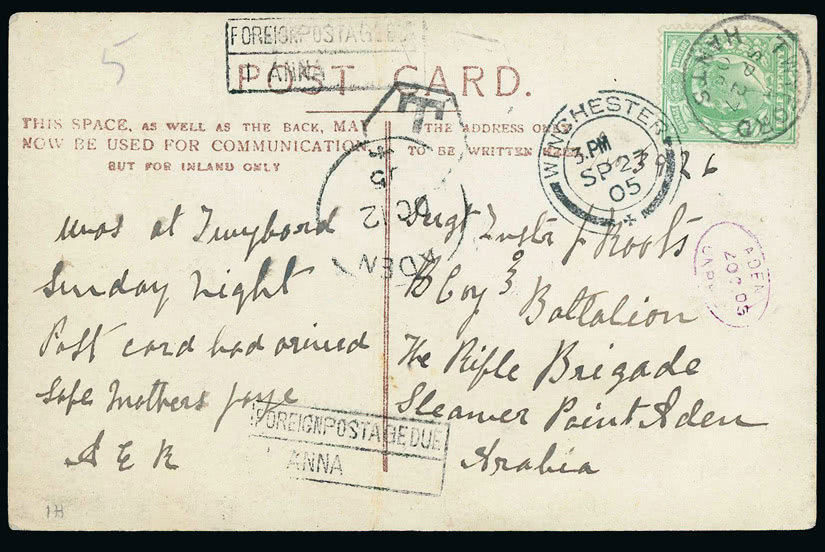 5
FOREIGN POSTAGE DUE
1 ANNA
POST CARD.
T
THIS SPACE, AS WELL AS THE BACK, MAY
NOW BE USED FOR COMMUNICATION,
BUT FOR INLAND ONLY
THE ADDRESS ONLY
TO BE WRITTEN HERE
TWYFORD
HANTS
SP 27
05
WINCHESTER
3. PM
SP 27
05
3926
ADEN
OC 12
05
ADEN
CARR
20 7 05
was at Twyford
Sunday Night
Post card had arived
Safe Mothers
A E R
Sergt Instr J Roots
B Coy 3
Battalion
The Rifle Brigade
Steamer Point Aden
Arabia
FOREIGN POSTAGE DUE
ANNA
1H